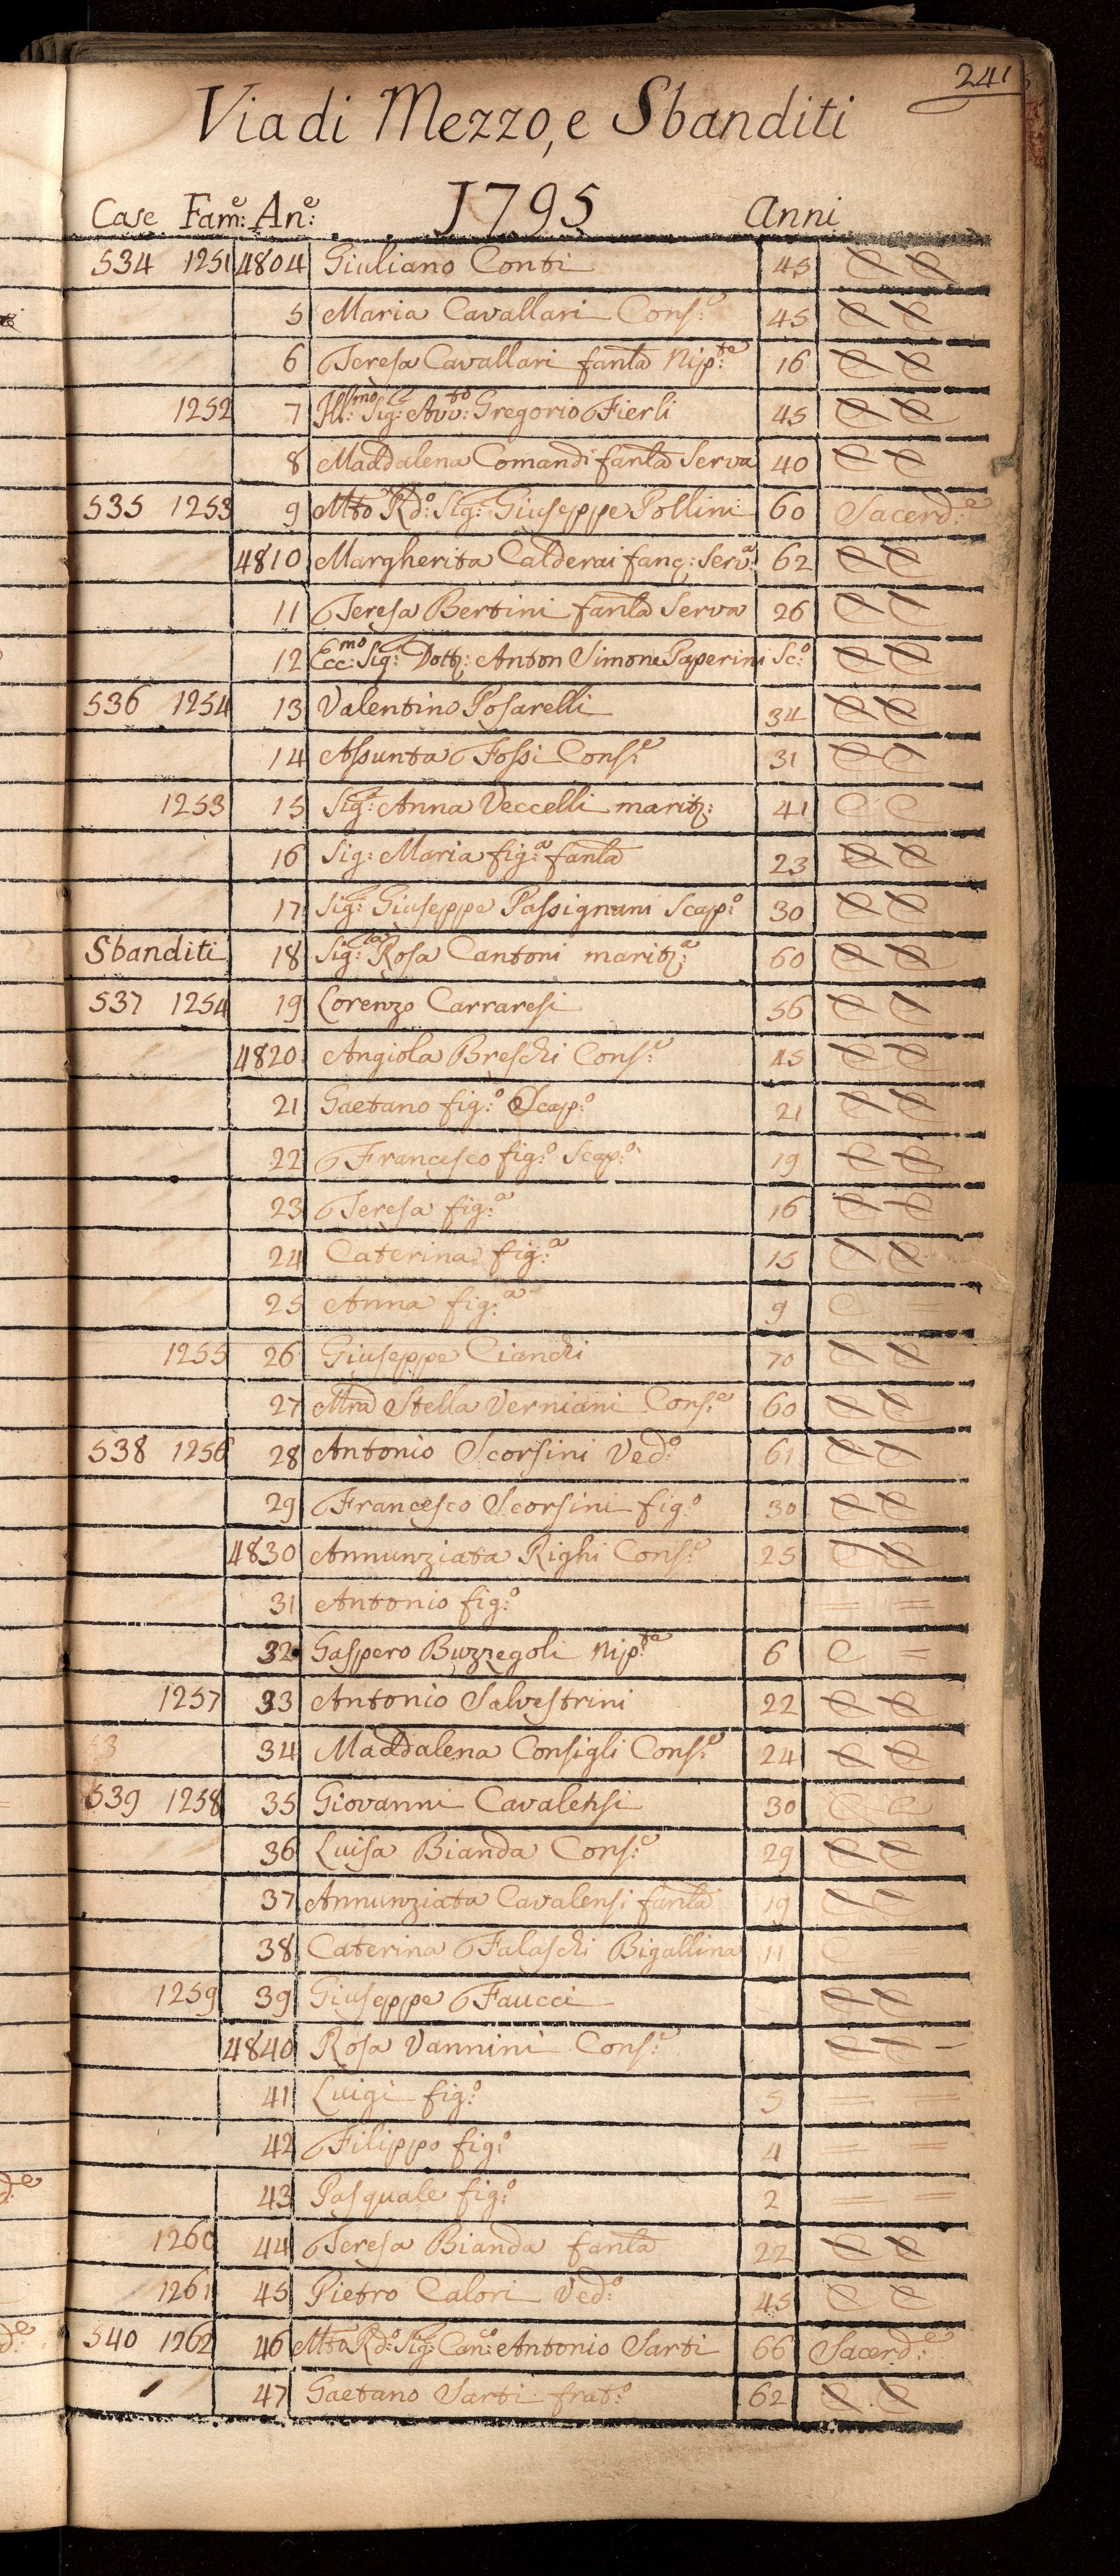 241
Via di Mezzo, e Sbanditi
1795
Case Fam:e An:e Anni
534 1251 4804 Giuliano Conti 45 C C
5 Maria Cavallari Cons:e 45 C C
6 Teresa Cavallari fanla Nip:te 16 C C
1252 7 Ill:mo Sig: Avv:to Gregorio Fierli 45 C C
8 Maddalena Comandi fanla Serva 40 C C
535 1253 9 Mto Rdo: Sig: Giuseppe Pollini 60 Sacerd:e
4810 Margherita Calderai fanc: Serv:a 62 C C
11 Teresa Bertini fanla Serva 26 C C
12 Ecc:mo Sig: Dott: Anton Simone Paperini Sc:o C C
536 1254 13 Valentino Posarelli 34 C C
14 Assunta Fossi Cons:e 31 C C
1253 15 Sig:a Anna Veccelli marit: 41 C C
16 Sig: Maria fig:a fanla 23 C C
17 Sig: Giuseppe Passignani Scap:o 30 C C
Sbanditi 18 Sig: Rosa Cantoni marit:a 60 C C
537 1254 19 Lorenzo Carraresi 56 C C
4820 Angiola Breschi Cons:e 45 C C
21 Gaetano fig:o Scap:o 21 C C
22 Francesco fig:o Scap:o 19 C C
23 Teresa fig:a 16 C C
24 Caterina fig:a 15 C C
25 Anna fig:a 9 C
1255 26 Giuseppe Cianchi 70 C C
27 Mra Stella Verniani Cons:e 60 C C
538 1256 28 Antonio Scorsini Ved:o 61 C C
29 Francesco Scorsini fig:o 30 C C
4830 Annunziata Righi Cons:e 25 C C
31 Antonio fig:o = =
32 Gaspero Buzzegoli Nip:te 6 C =
1257 33 Antonio Salvestrini 22 C C
34 Maddalena Consigli Cons:e 24 C C
539 1258 35 Giovanni Cavalensi 30 C C
36 Luisa Bianda Cons:e 29 C C
37 Annunziata Cavalensi fanla 19 C C
38 Caterina Falaschi Bigallina 11 C
1259 39 Giuseppe Faucci C C
4840 Rosa Vannini Cons:e C C
41 Luigi fig:o 5 = =
42 Filippo fig:o 4 = =
43 Pasquale fig:o 2 = =
1260 44 Teresa Bianda fanla 22 C C
1261 45 Pietro Calori Ved:o 45 C C
540 1262 46 Mto Rdo: Sig: Can:co Antonio Sarti 66 Sacerd:e
47 Gaetano Sarti frat:o 62 C C